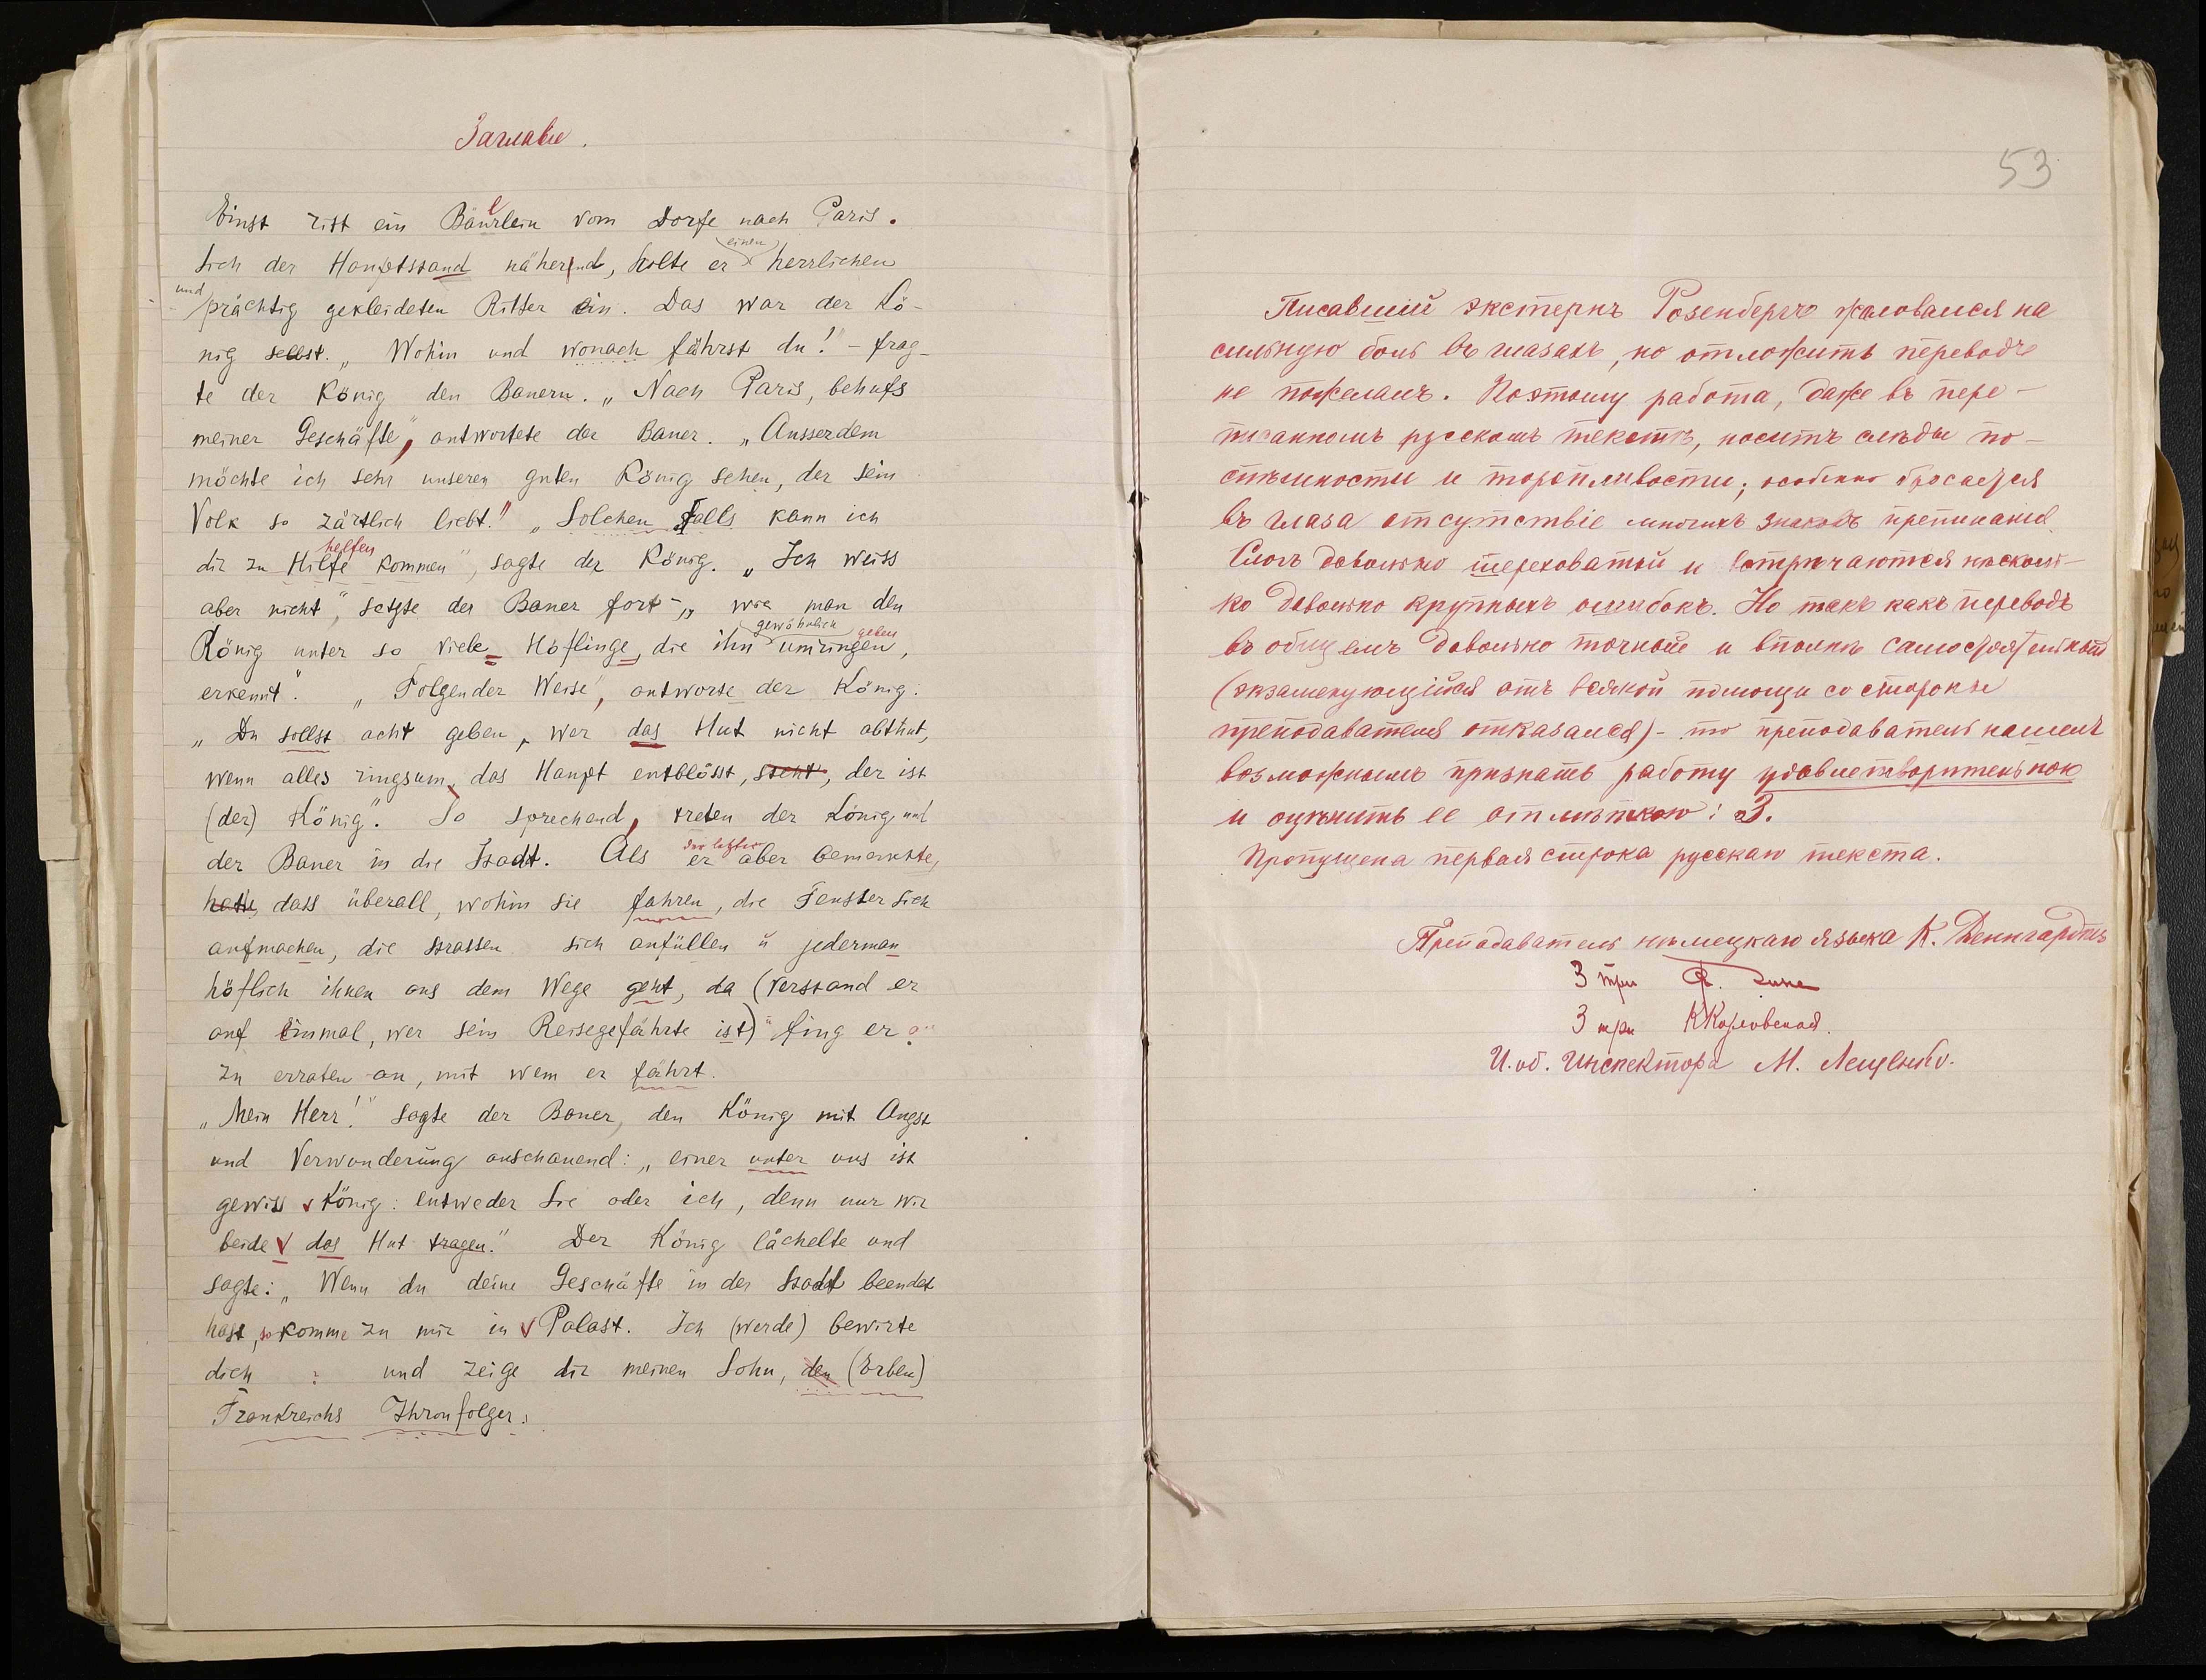 Заглавіе.
Einst ritt ein Bäuerlein vom Dorfe nach Paris.
einen
Sich der Hauptstand nähernd, holte er herrlichen
und
prächtig gekleideten Ritter ein. Das war der Kö-
nig selbst. „Wohin und wonach fährst du!" - frag-
te der König den Bauern. „Nach Paris, behufs
meiner Geschäfte", antwortete der Bauer. „Ausserdem
möchte ich sehr unseren guten König sehen, der sein
Volk so zärtlich liebt!" „Solchen Falls kann ich
helfen
dir zu Hilfe kommen", sagte der König. „Ich weiss
aber nicht", setzte der Bauer fort -„ wie man den
gewöhnlich geben
König unter so viele Höflinge, die ihn umringen,
erkennt". „Folgender Weise", antworte der König:
„Du sollst acht geben, wer das Hut nicht abthut,
wenn alles ringsum das Haupt entblösst, steht, der ist
(der) König". So sprechend, treten der König und
der Bauer in die Stadt. Als er aber bemerkte,
der letztere
hatte, dass überall, wohin sie fahren, die Fenster sich
aufmachen, die Strassen sich anfüllen u jederman
höflich ihnen aus dem Wege geht, da (verstand er
auf Einmal, wer sein Reisegefährte ist) fing er
zu erraten an, mit wem er fährt.
„Mein Herr!" sagte der Bauer, den König mit Angst
und Verwunderung anschauend: „einer unter uns ist
gewiss König: entweder Sie oder ich, denn nur wir
beide das Hut tragen." Der König lächelte und
sagte: „Wenn du deine Geschäfte in der Stadt beendet
hast, so komme zu mir in Palast. Ich (werde) bewirte
dich und zeige dir meinen Sohn, den (Erben)
Frankreichs Thronfolger.
53
Писавшій экстернъ Розенбергъ жаловался на
сильную боль въ глазахъ, но отложить переводъ
не пожелалъ. Поэтому работа, даже въ пере-
писанномъ русскомъ текстѣ, носитъ слѣды по-
спѣшности и торопливости; особенно бросается
въ глаза отсутствіе многихъ знаковъ препинанія.
Слогъ довольно шероховатый и встрѣчаются нѣсколь-
ко довольно крупныхъ ошибокъ. Но такъ какъ переводъ
въ общемъ довольно точный и вполнѣ самостоятельный
(экзаменующійся отъ всякой помощи со стороны
преподавателя отказался) - то преподаватель нашелъ
возможнымъ признать работу удовлетворительною
и оцѣнить ее отмѣткою: 3.
Пропущена первая строка русскаго текста.
Преподаватель нѣмецкаго языка К. Денгардтъ
3 три
3 три К Карловская.
И. об. Инспектора М. Лещенко.